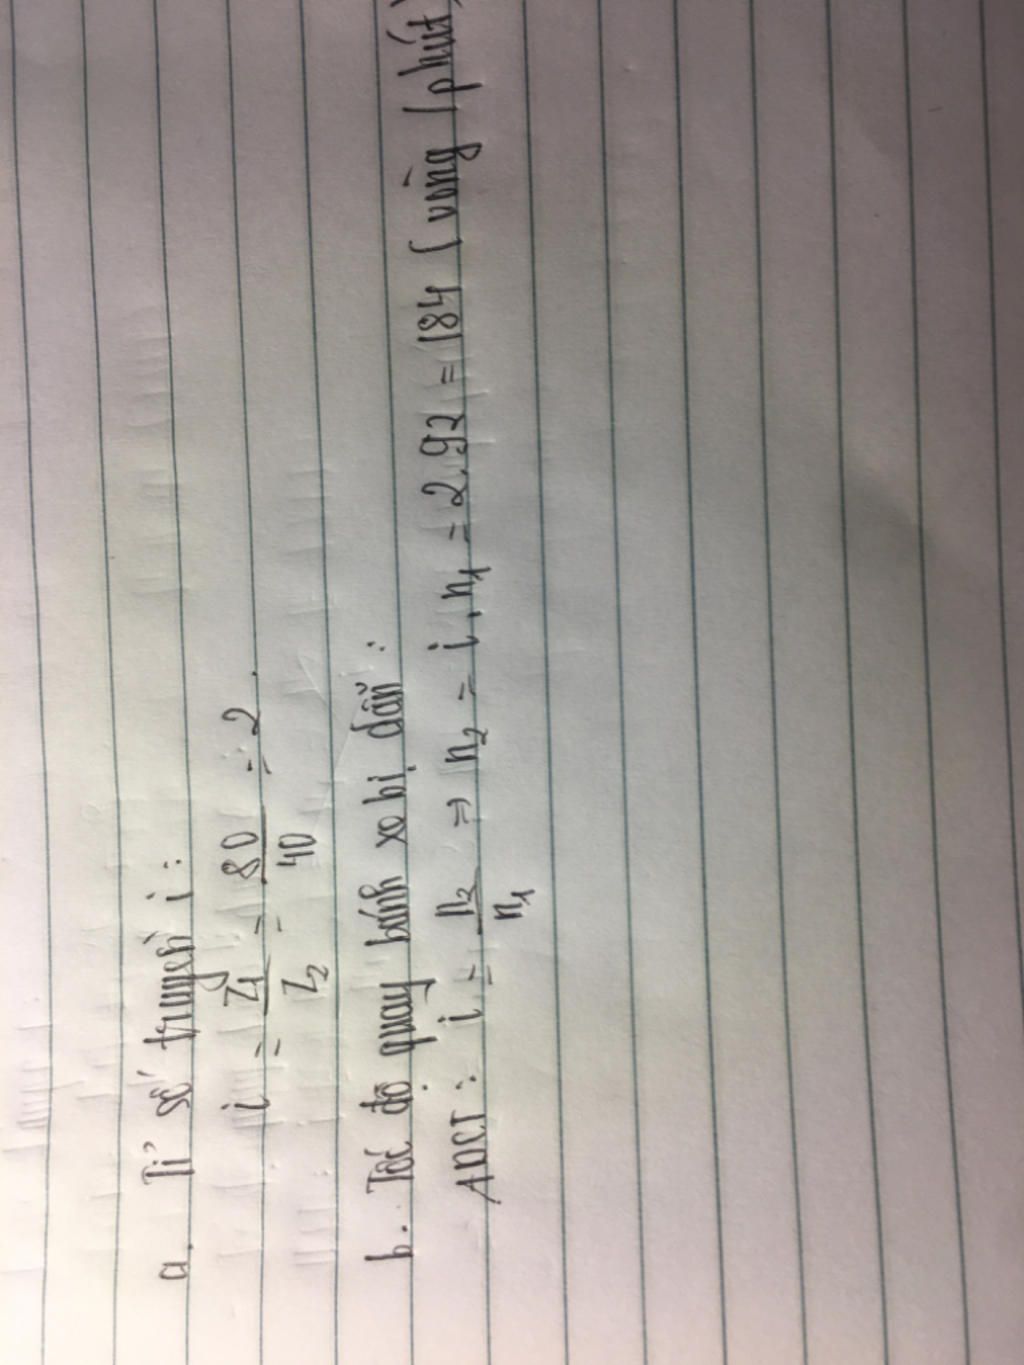 a. Tỉ số truyền i :
i = Z1/Z2 = 80/40 = 2.
b. Tốc độ quay bánh xe bị dẫn :
ADCT : i = n2/n1 => n2 = i . n1 = 2.92 = 184 (vòng / phút)